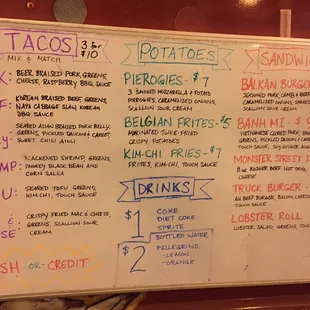 TACOS 3 for $10
MIX & MATCH
X: BEER BRAISED PORK, GREENS,
CHEESE, RASPBERRY BBQ SAUCE
F: KOREAN BRAISED BEEF, GREENS,
NAPA CABBAGE SLAW, KOREAN
BBQ SAUCE
SEARED ASIAN BRAISED PORK BELLY,
GREENS, PICKLED DAIKON & CARROT,
SWEET CHILI AIOLI
MP: BLACKENED SHRIMP, GREENS,
SMOKEY BLACK BEAN AND
CORN SALSA
U: SEARED TOFU, GREENS,
KIM-CHI, TOUCH SAUCE
&
SE: CRISPY FRIED MAC & CHEESE,
GREENS, SCALLION SOUR
CREAM
SH -OR- CREDIT
POTATOES
PIEROGIES - $7
3 SMOKED MOZZARELLA & POTATO
PIEROGIES, CARAMELIZED ONIONS,
SCALLION SOUR CREAM
BELGIAN FRITES - $5
MARINATED TWICE-FRIED
CRISPY POTATOES
KIM-CHI FRIES - $7
FRITES, KIM-CHI, TOUCH SAUCE
DRINKS
$1 COKE
DIET COKE
SPRITE
BOTTLED WATER
$2 PELLEGRINO
-LEMON
-ORANGE
SANDWI
BALKAN BURGER
SEASONED PORK, LAMB & BEEF
CARAMELIZED ONIONS,
SCALLION SOUR CREAM
BANH MI - $
VIETNAMESE CURED PORK,
GREENS, PICKLED DAIKON
TOUCH SAUCE
MONSTER STREET D
KOSHER BEEF HOT DOG,
CHEESE
TRUCK BURGER -
BEEF BURGER, BACON, CHEESE
TOUCH SAUCE
LOBSTER ROLL
LOBSTER SALAD, GREENS,